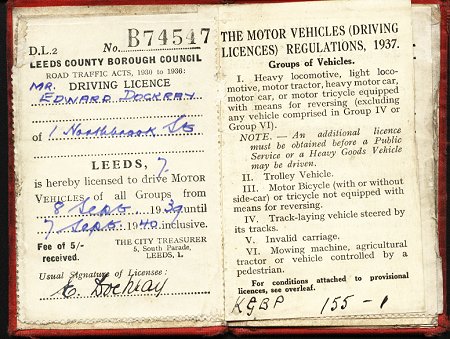 D.L.2 No. B74547
LEEDS COUNTY BOROUGH COUNCIL
ROAD TRAFFIC ACTS, 1930 to 1936:
DRIVING LICENCE
MR.
EDWARD DOCKRAY
of 1 Northbrook Sts
LEEDS, 7
is hereby licensed to drive MOTOR
VEHICLES of all Groups from
8 Sept 1939 until
7 Sept 1940 inclusive.
Fee of 5/-
received.
THE CITY TREASURER
5, South Parade,
LEEDS, 1.
Usual Signature of Licensee:
E. Dockray
THE MOTOR VEHICLES (DRIVING
LICENCES) REGULATIONS, 1937.
Groups of Vehicles.
I. Heavy locomotive, light loco-
motive, motor tractor, heavy motor car,
motor car, or motor tricycle equipped
with means for reversing (excluding
any vehicle comprised in Group IV or
Group VI).
NOTE. — An additional licence
must be obtained before a Public
Service or a Heavy Goods Vehicle
may be driven.
II. Trolley Vehicle.
III. Motor Bicycle (with or without
side-car) or tricycle not equipped with
means for reversing.
IV. Track-laying vehicle steered by
its tracks.
V. Invalid carriage.
VI. Mowing machine, agricultural
tractor or vehicle controlled by a
pedestrian.
For conditions attached to provisional
licences, see overleaf.
KGBP 155-1